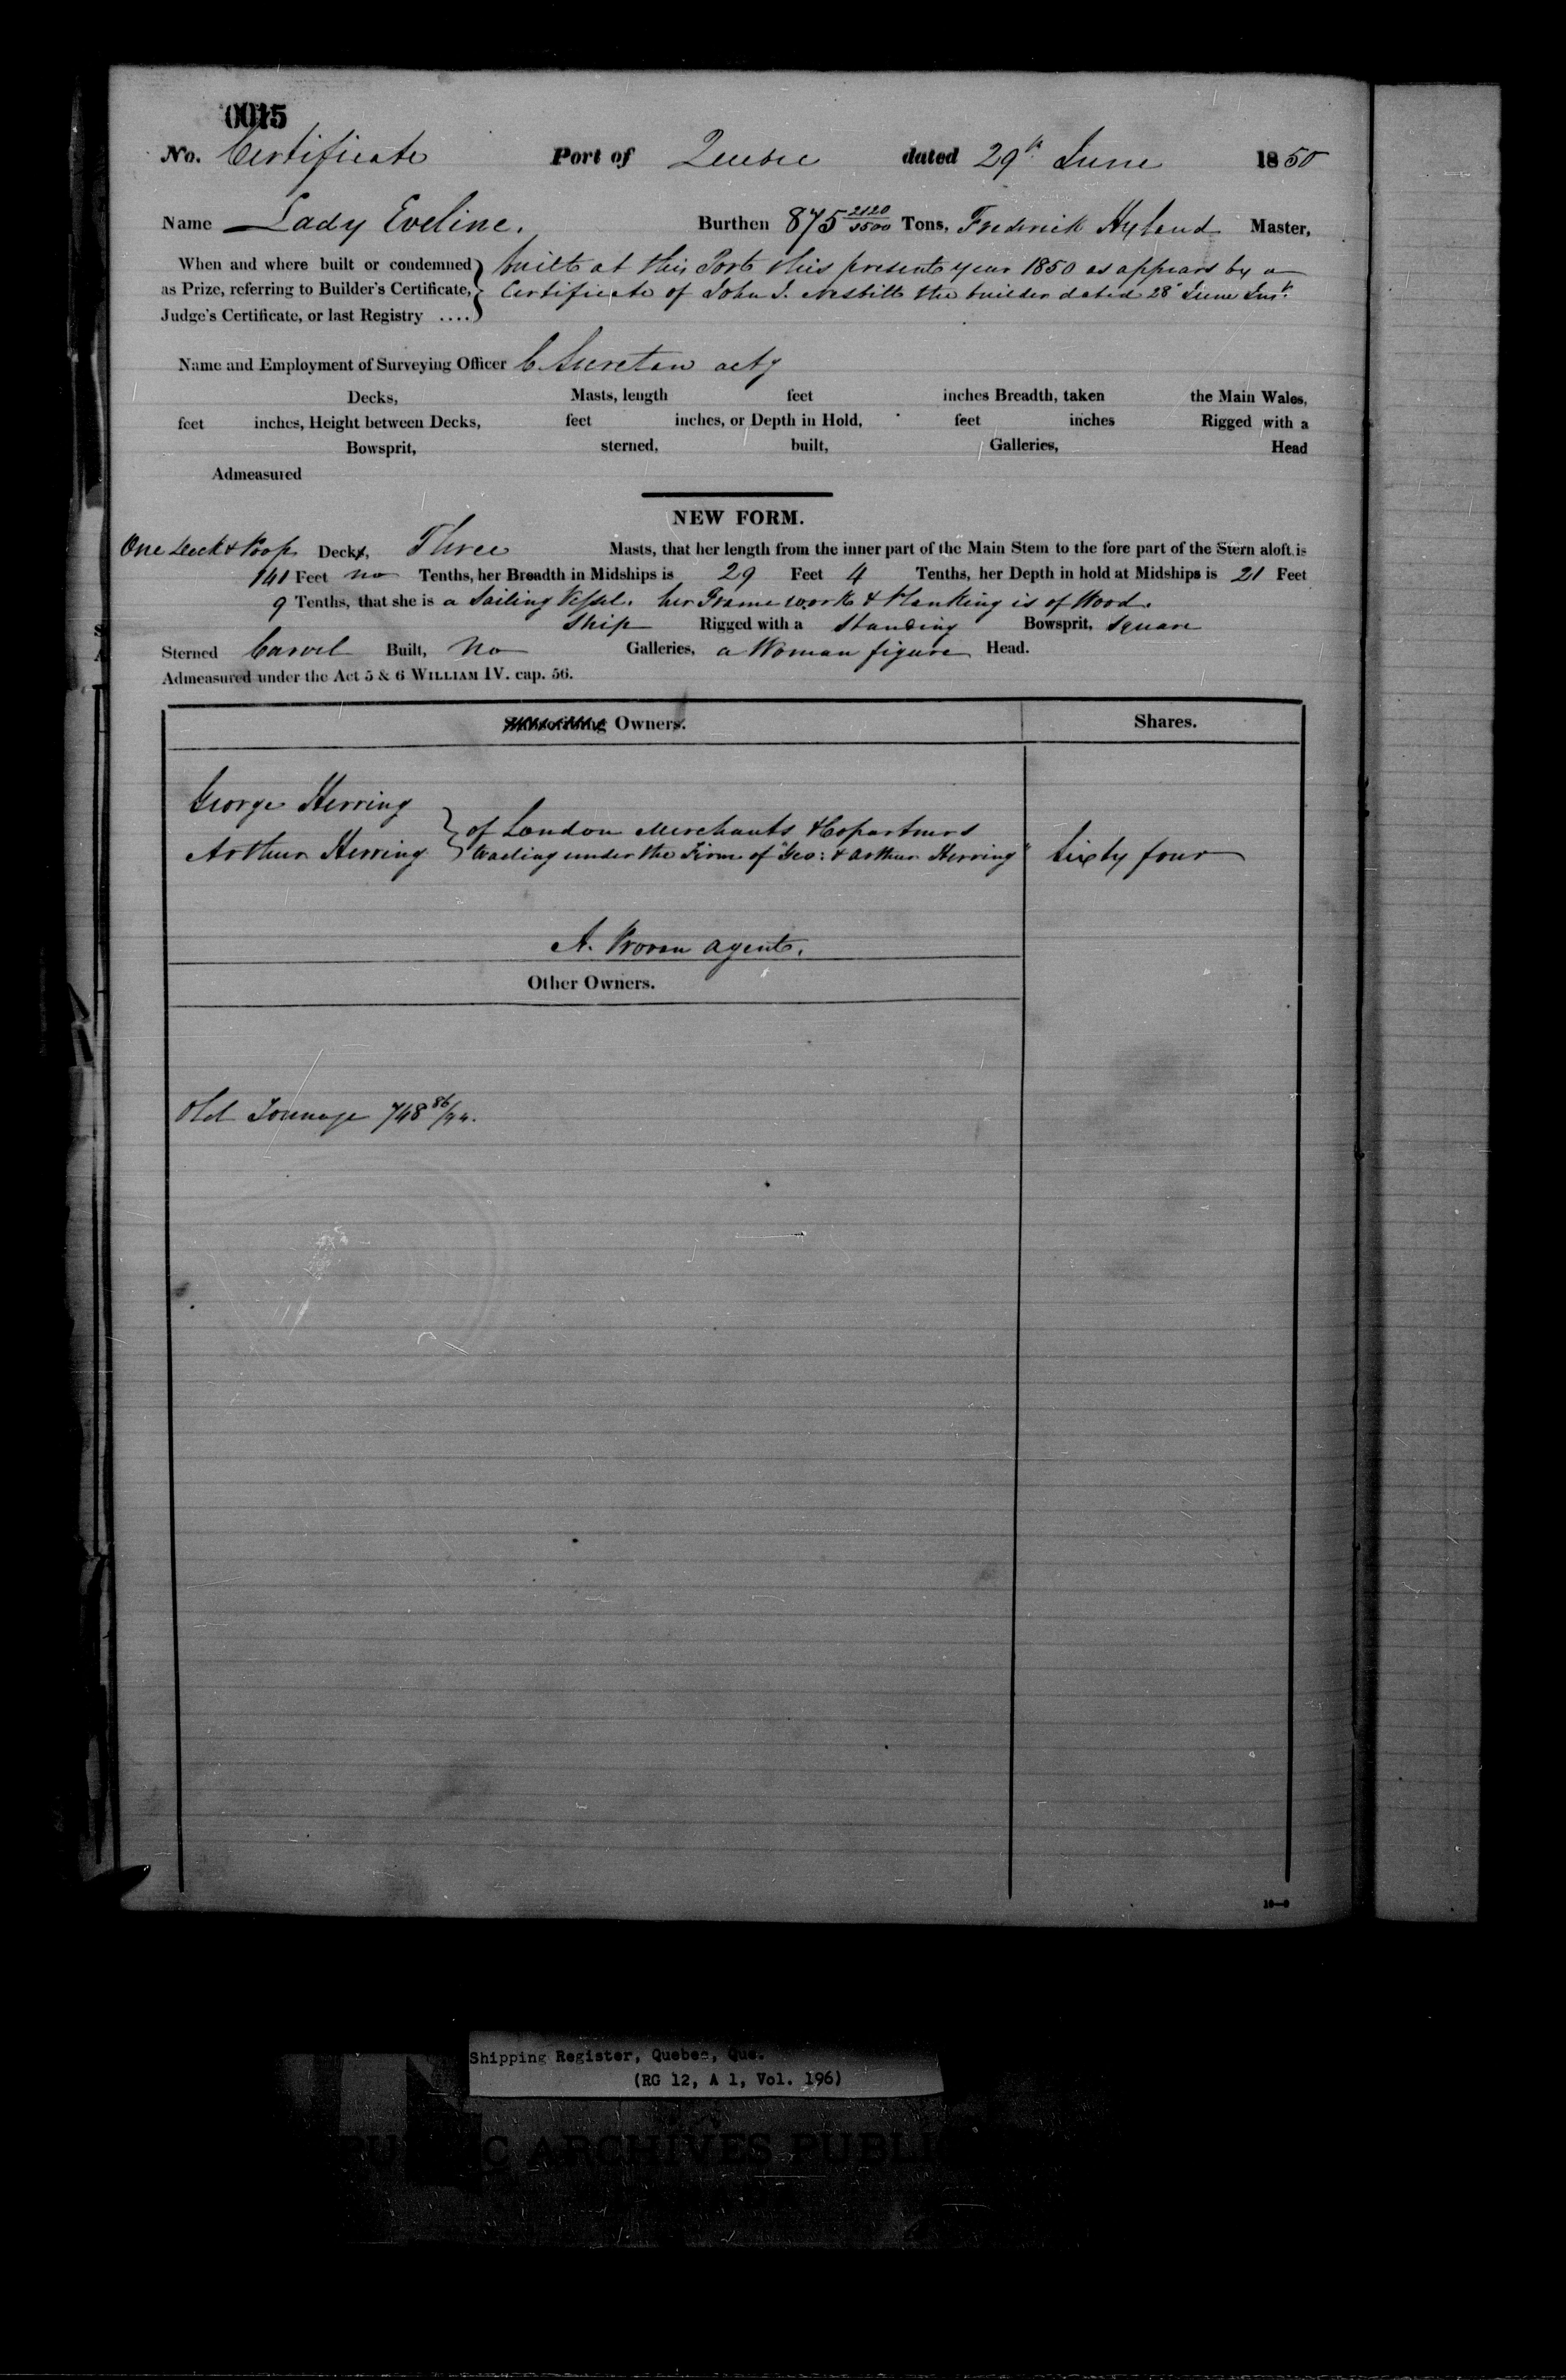 0015
No. Certificate Port of Quebec dated 29th June 1850
Name Lady Eveline. Burthen 875 2120/3500 Tons, Frederick Hyland Master,
When and where built or condemned built at this Port this present year 1850 as appears by a
as Prize, referring to Builder's Certificate, Certificate of John J. Nesbitt the builder dated 28th June Inst.
Judge's Certificate, or last Registry ....
Name and Employment of Surveying Officer C Sewretan actg
Decks, Masts, length feet inches Breadth, taken the Main Wales,
feet inches, Height between Decks, feet inches, or Depth in Hold, feet inches Rigged with a
Bowsprit, sterned, built, Galleries, Head
Admeasured
NEW FORM.
One Deck & Poop Deck, Three Masts, that her length from the inner part of the Main Stem to the fore part of the Stern aloft is
141 Feet no Tenths, her Breadth in Midships is 29 Feet 4 Tenths, her Depth in hold at Midships is 21 Feet
9 Tenths, that she is a Sailing Vessel. her Frame work & Planking is of Wood.
Ship Rigged with a Standing Bowsprit, Square
Sterned Carvel Built, No Galleries, a Woman figure Head.
Admeasured under the Act 5 & 6 WILLIAM IV. cap. 56.
Owners. Shares.
George Herring
of London Merchants & Copartners
Arthur Herring trading under the Firm of "Geo: & Arthur Herring" Sixty four
A. Provan Agent.
Other Owners.
Old Tonnage 748 86/94.
10—9
Shipping Register, Quebec, Que.
(RG 12, A 1, Vol. 196)
PUBLIC ARCHIVES PUBLI